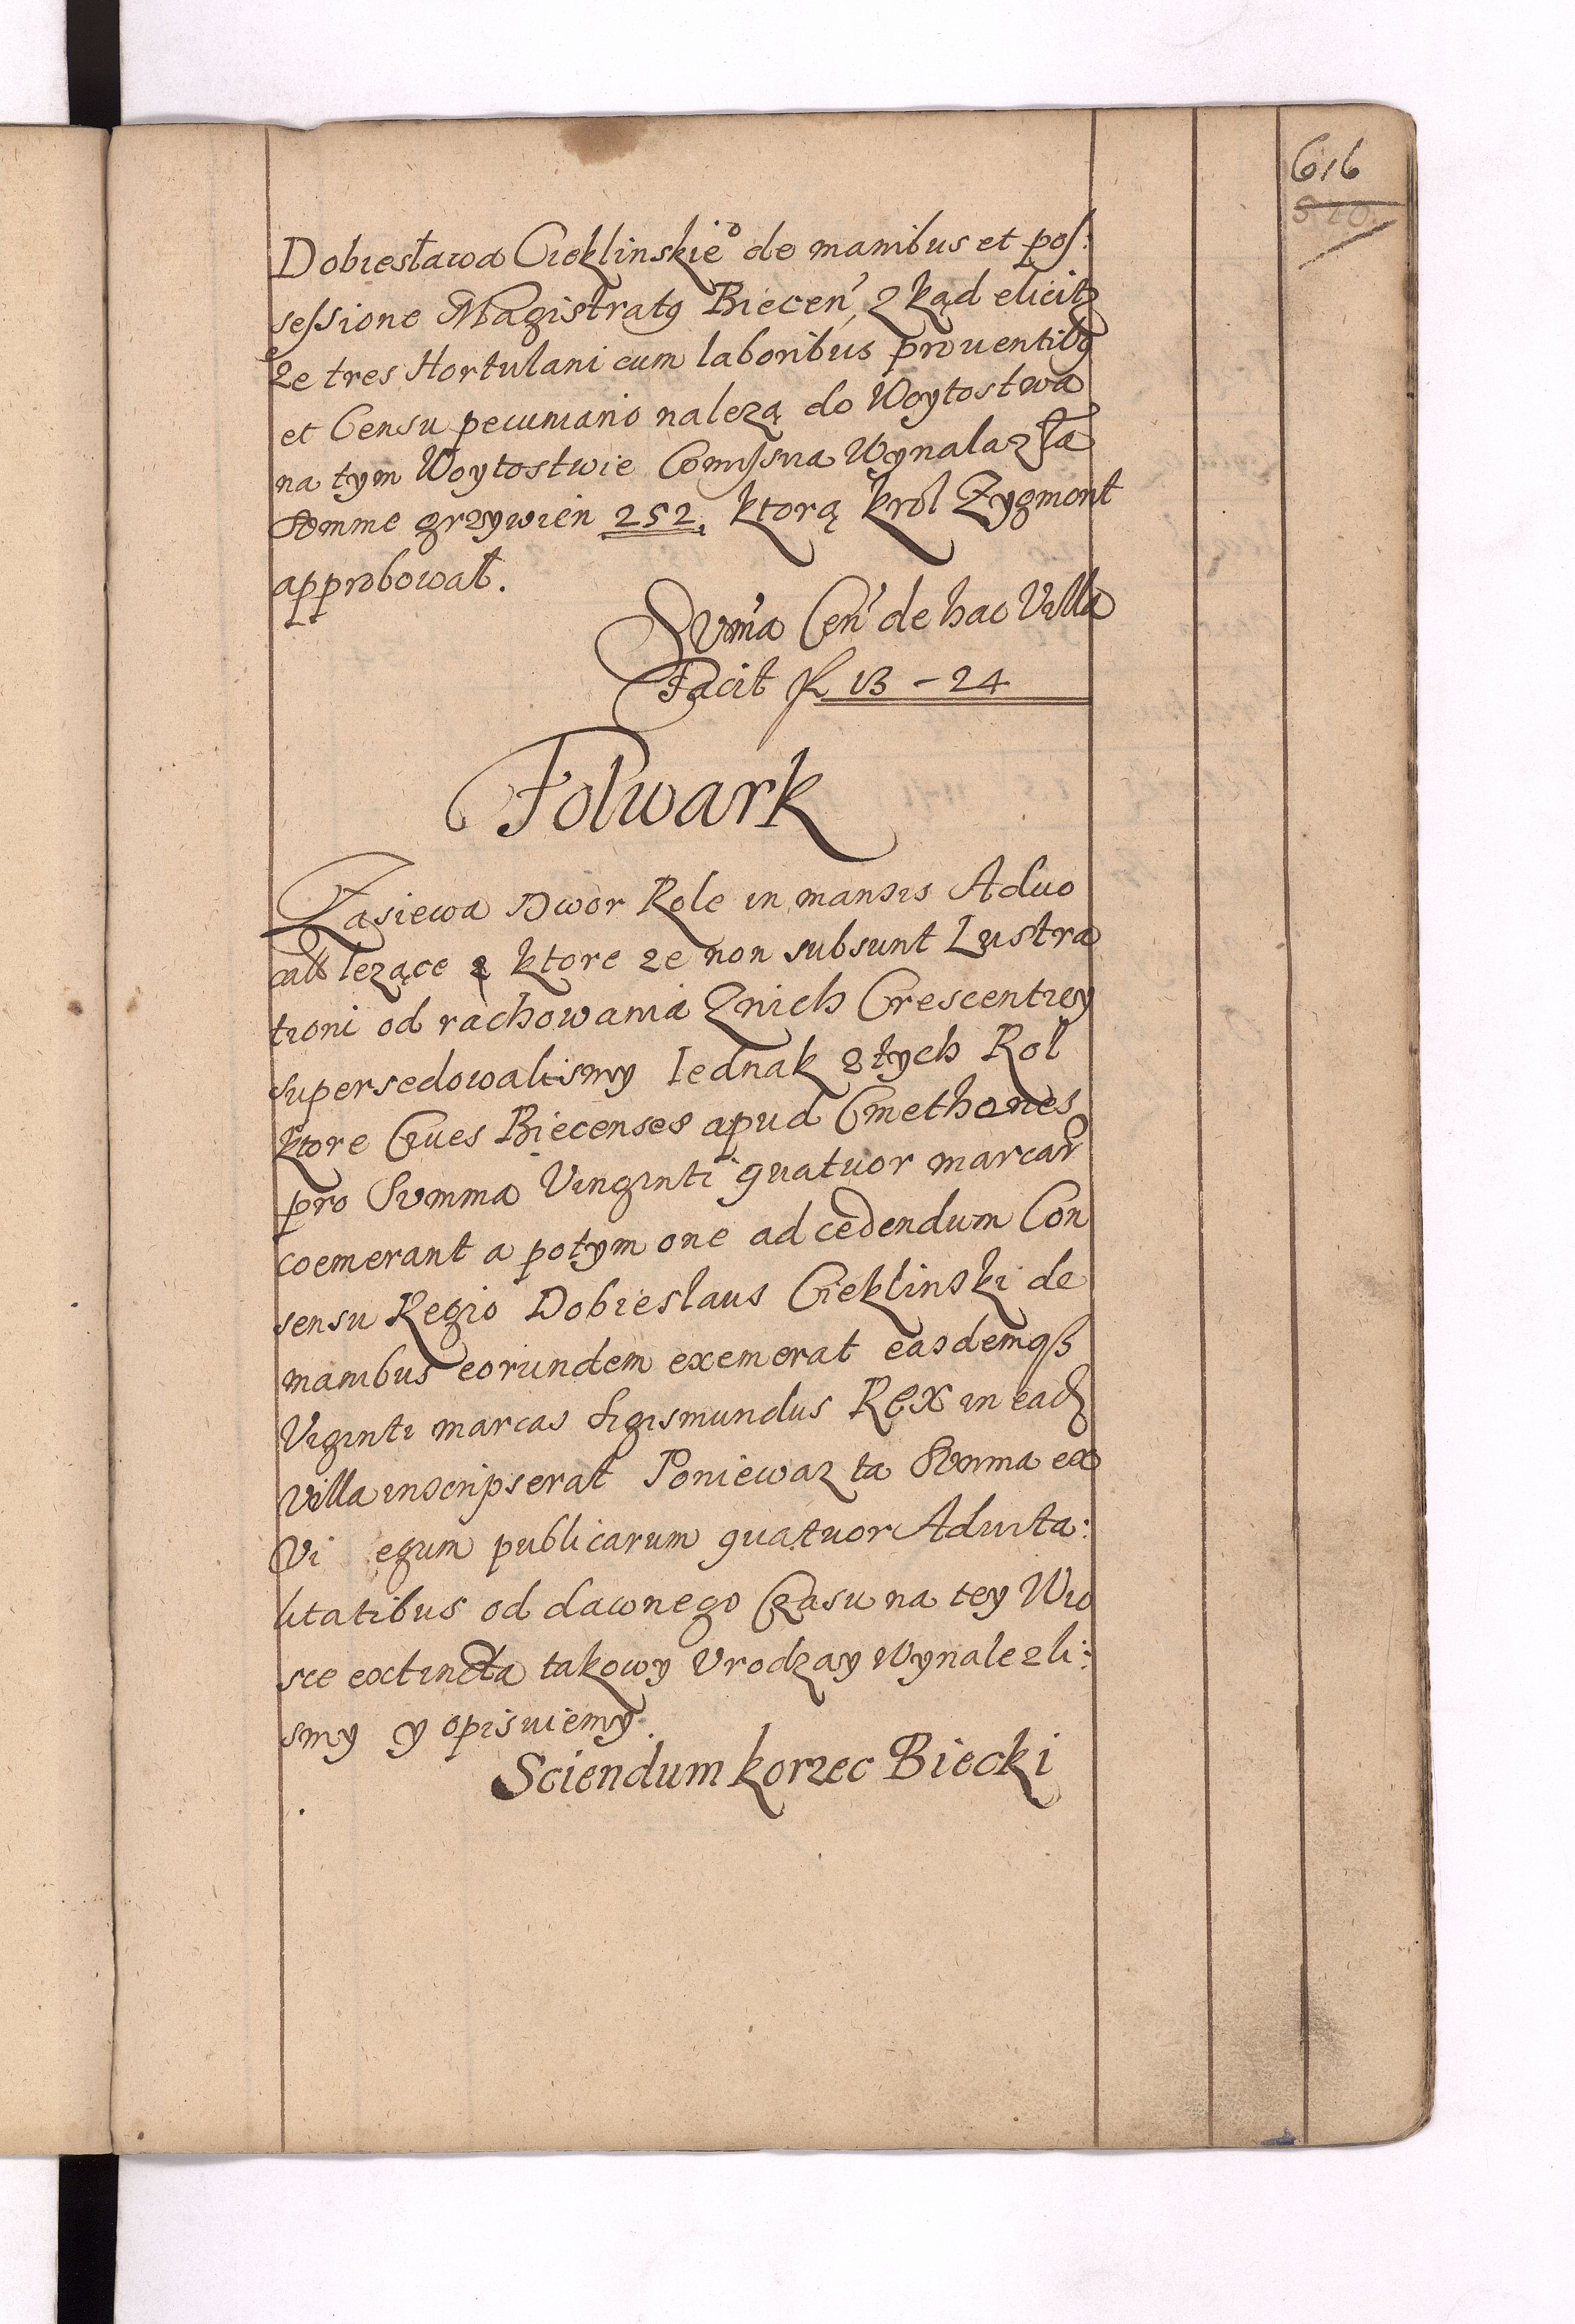 616
520
Dobiesławа Cieklinskieº de manibus et pos:
sessione Magistratq Biecen' z kąd elicitz
ze tres Hortulani cum laboribus prouentibq
et Censu pecuniario nalezą do Woytostwa
na tym Woytostwie Comissia Wynalazła
Somme grzywien 252, ktorą krol Zygmont
approbował.
Sum̃a Cen' de hac Villa
Facit fl 13 - 24
Folwark
Zasiewa Dwor Role in mansis Aduo
lezące ktore ze non subsunt Lustra
tioni od rachowania Znich Crescentiey
supersedowalismy Iednak z tych Rol
ktore Ciues Biecenses apud Cmethones
pro Summa Vinginti quatuor marcar
coemerant a potym one ad cedendum Con
sensu Regio Dobieslaus Cieklinski de
manibus eorundem exemerat easdemqß
Viginti marcas Sigismundus REX in ead
Villa inscripserat Poniewaz ta Summa ex
Vi egum publicarum quatuor Aduita:
litatibus od dawnego Czasu na tey Wio
sce extincta takowy Vrodzay Wynalezli:
smy y opisuiemy.
Sciendum korzec Biecki